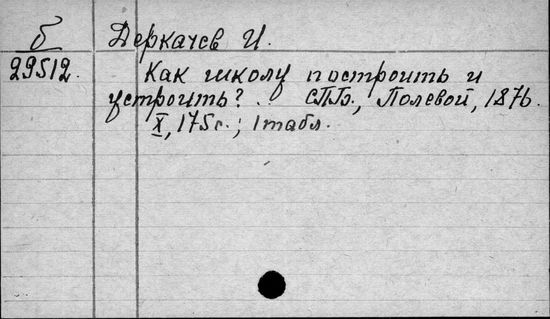 б Деркачев И.
29512. Как школу построить и
устроить? . СПб., Полевой, 1876.
X, 175с.; 1 табл.